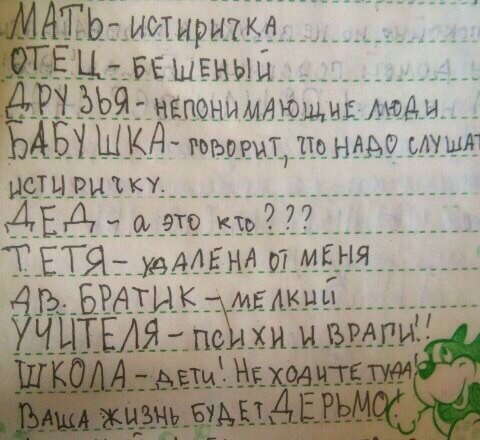 МАТЬ- ИСТИРИЧКА
ОТЕЦ- БЕШЕНЫЙ
ДРУЗЬЯ- НЕПОНИМАЮЩИЕ ЛЮДИ
БАБУШКА- ГОВОРИТ, ЧТО НАДО СЛУШАТ
ИСТИРИЧКУ.
ДЕД- а это кто???
ТЕТЯ- УДАЛЕНА ОТ МЕНЯ
ДВ. БРАТИК- МЕЛКИЙ
УЧИТЕЛЯ- ПСИХИ И ВРАГИ!!
ШКОЛА- ДЕТИ! НЕ ХОДИТЕ ТУДА!
ВАША ЖИЗНЬ БУДЕТ ДЕРЬМО!